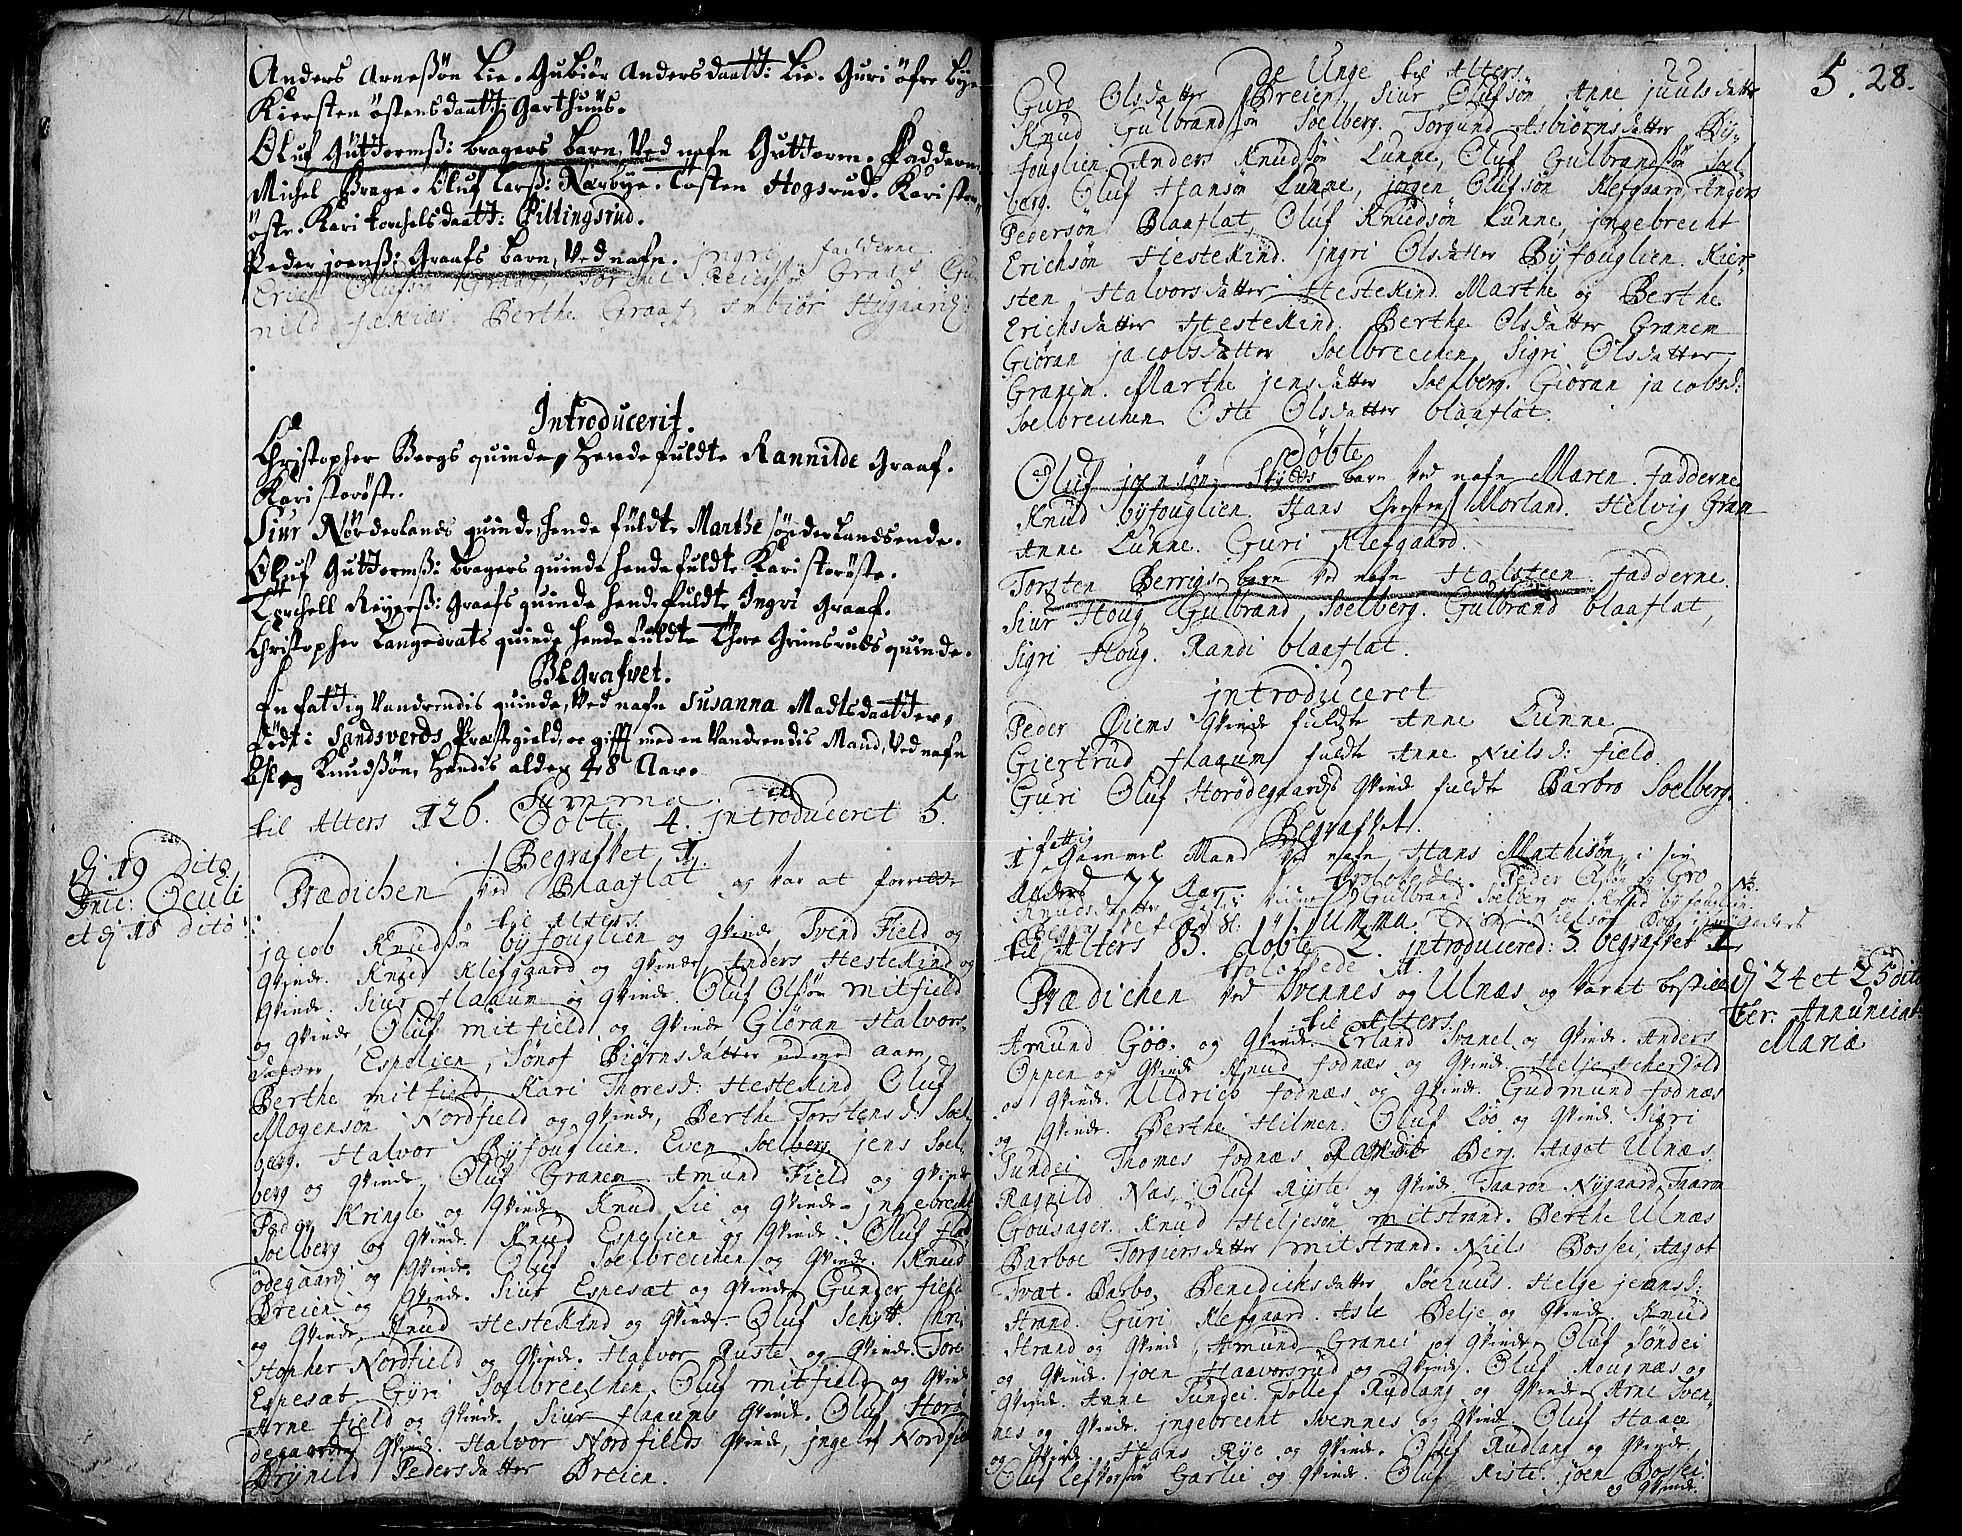 Anders Arneßøn Lie. Gubiør Andersdaatt: Lie. Guri öfre bye
Kiersten östensdaatt: Garthuus.
Oluf Guttormß: bragers barn, Ved nafn Guttorm. Fadderne
Michel Brage. Oluf Larß: Rærbye. Tosten Hogsrud. Kari stor-
öste. Kari torchelsdaatt: Pillingsrud.
Peder joenß: Graafs barn, Ved nafn. jngri. fadderne
Erich Olufsøn Graaf, Torchel Graaf Gu-
nild Berthe Graaf,
Introducerit.
Christopher Bergs quinde, hende fuldte Rannilde Graaf.
Kari storöste.
Siur Nørderlands quinde hende füldte Marthe sönderlandsende.
Oluf Guttormß: bragers quinde hende fuldte Kari storöste.
Torchell Reyerß: Graafs quinde hende fuldte Ingri Graaf.
Christopher Langedrats quinde hende fuldte Thore Grimsruds quinde.
Begrafvet.
En fattig Vandrendis quinde, Ved nafn Susanna Madtsdaatter,
född i Sandsverds Præstegield, oc gifft med en Vandrendis Mand, Ved nafn
Knudßøn, hendis alder 48 Aar.
Summa
til Alters 126. Döbte 4. introduceret 5.
Begrafvet 1.
dj 19 dito
Dnic: Oculi
et dj 18 dito
Prædichen ved Blaaflat og var at forrette
til Alters.
jacob Knudsøn byfouglien og qvinde, Svend Field og
qvinde. Knud Klefgaard og qvinde, Anders Hestekind og
qvinde. Siur Haaum og qvinde. Oluf Olsøn mitfield
og qvinde, Oluf mitfield og qvinde Giøran Halvors-
datter Espelien, Sønof Biørnsdatter udmed aam,
Berthe mitfield, Kari Thoresd: Hestekind, Oluf
Mogensøn Nordfield og qvinde, Berthe Torstensd: Soel-
berg. Halvor Byfouglien. Even Soelberg, jens Soel-
berg og qvinde, Oluf Granem Amund Field og qvinde
Peder Kringle og qvinde. Knud Lie og qvinde. jngebrecht
Soelberg og qvinde. Knud Espelien og qvinde. Oluf
ödegaard og qvinde. Oluf Soelbrecchen og qvinde. Knud
Breien og qvinde. Siur Espesæt og qvinde Gunder field
og qvinde, Knud Hestekind og qvinde. Oluf Schytt. Chri-
stopher Nordfield og qvinde. Halvor Ruste og qvinde. Tore
Espesæt Gyri Soelbrecchen. Oluf mitfield og qvinde
Arne field og qvinde. Siur Haaums qvinde. Oluf Storø-
degaards qvinde. Halvor Nordfields qvinde, jngelef Nordfield
Brynild Pedersdatter Breien.
5. 28.
De Unge til Alters.
Guro Olsdatter Breien, Siur Olufsøn, Anne juulsdatter
Knud Gulbrandsøn Soelberg. Torgund Asbiørnsdatter By-
fouglien Anders Knudsøn Lunne, Oluf Gulbrandsøn Soel-
berg. Oluf Hansøn Lunne, jörgen Olufsøn Klefgaard, Anders
Pedersøn Blaaflat, Oluf Knudsøn Lunne, jngebrecht
Erichsøn Hestekind. jngri Olsdatter Byfouglien. Kier-
sten Halvorsdatter Hestekind. Marthe og Berthe
Erichsdatter Hestekind. Berthe Olsdatter Granem
Giøran jacobsdatter Soelbrecchen, Sigri Olsdatter
Granem. Marthe jensdatter Soelberg. Giøran jacobsd:
Soelbrecchen Oste Olsdatter blaaflat.
Döbte
Oluf joensøn Skyds barn Ved nafn Maren. fadderne
Knud byfouglien. Hans Morland. Helvig Gran
Anne Lunne. Guri Klefgaard.
Torsten Berrigs barn Ved nafn Halsteen. fadderne.
Siur Houg Gulbrand Soelberg. Gulbrand blaaflat,
Sigri Houg. Randi blaaflat.
introduceret
Peder Øiems qvinde fuldte Anne Lunne
Giertrud Haaum fuldte Anne Nielsd: field.
Guri Oluf Storødegaards qvinde fuldte Barbro Soelberg.
Begrafvet.
1 fattig Gammel Mand Ved nafn Hans Mathisøn, i sin
alders 77 Aar. Trolovede. Peder og Gro
Knudsdatter Gulbrand Soelberg og Knud byfouglien.
Summa.
til Alters 85. döbte 2. introducered: 3. begrafvet 1.
trolovede 1.
dj 24 et 25 dito
fer: Annunciat:
Mariæ
Prædichen ved Svennes og Ulnæs og var at bestille
til Alters.
Amund Göo. og qvinde. Erland Svanel og qvinde. Anders
Oppen og qvinde Knud fodnæs og qvinde Helje
og qvinde. Uldrich fodnæs og qvinde. Gudmund fodnæs
og qvinde. Berthe Hilmen. Oluf Loo og qvinde. Sigri
Sundei Thomes fodnæs Randi Berg. Aagot Ulnæs.
Ragnild Næs, Oluf Ryste og qvinde Taaron Nygaard, Taaron
Gousager. Knud Heljesøn mitstrand. Berthe Ulnæs
Barboe Torgiersdatter mitstrand. Niels Bossei, Aagot
Tvæt. Barbo Benedichsdatter Helje jensd:
Strand. Guri Klefgaard. Asle Belje og qvinde Knud
Strand og qvinde, Amund Granei og qvinde, Oluf Söndei
og qvinde. joen Haavorsrud og qvinde. Oluf Mougnæs og
qvinde. Anne Sundei. Tollef Rudlang og qvinde Arne Sven-
nes og qvinde. jngebrecht Svennes og qvinde. Oluf Haace
og qvinde. Hans Rye og qvinde. Oluf Rudlang og qvinde.
Oluf Garlie og qvinde. Oluf Riste. joen Bossei
og qvinde.